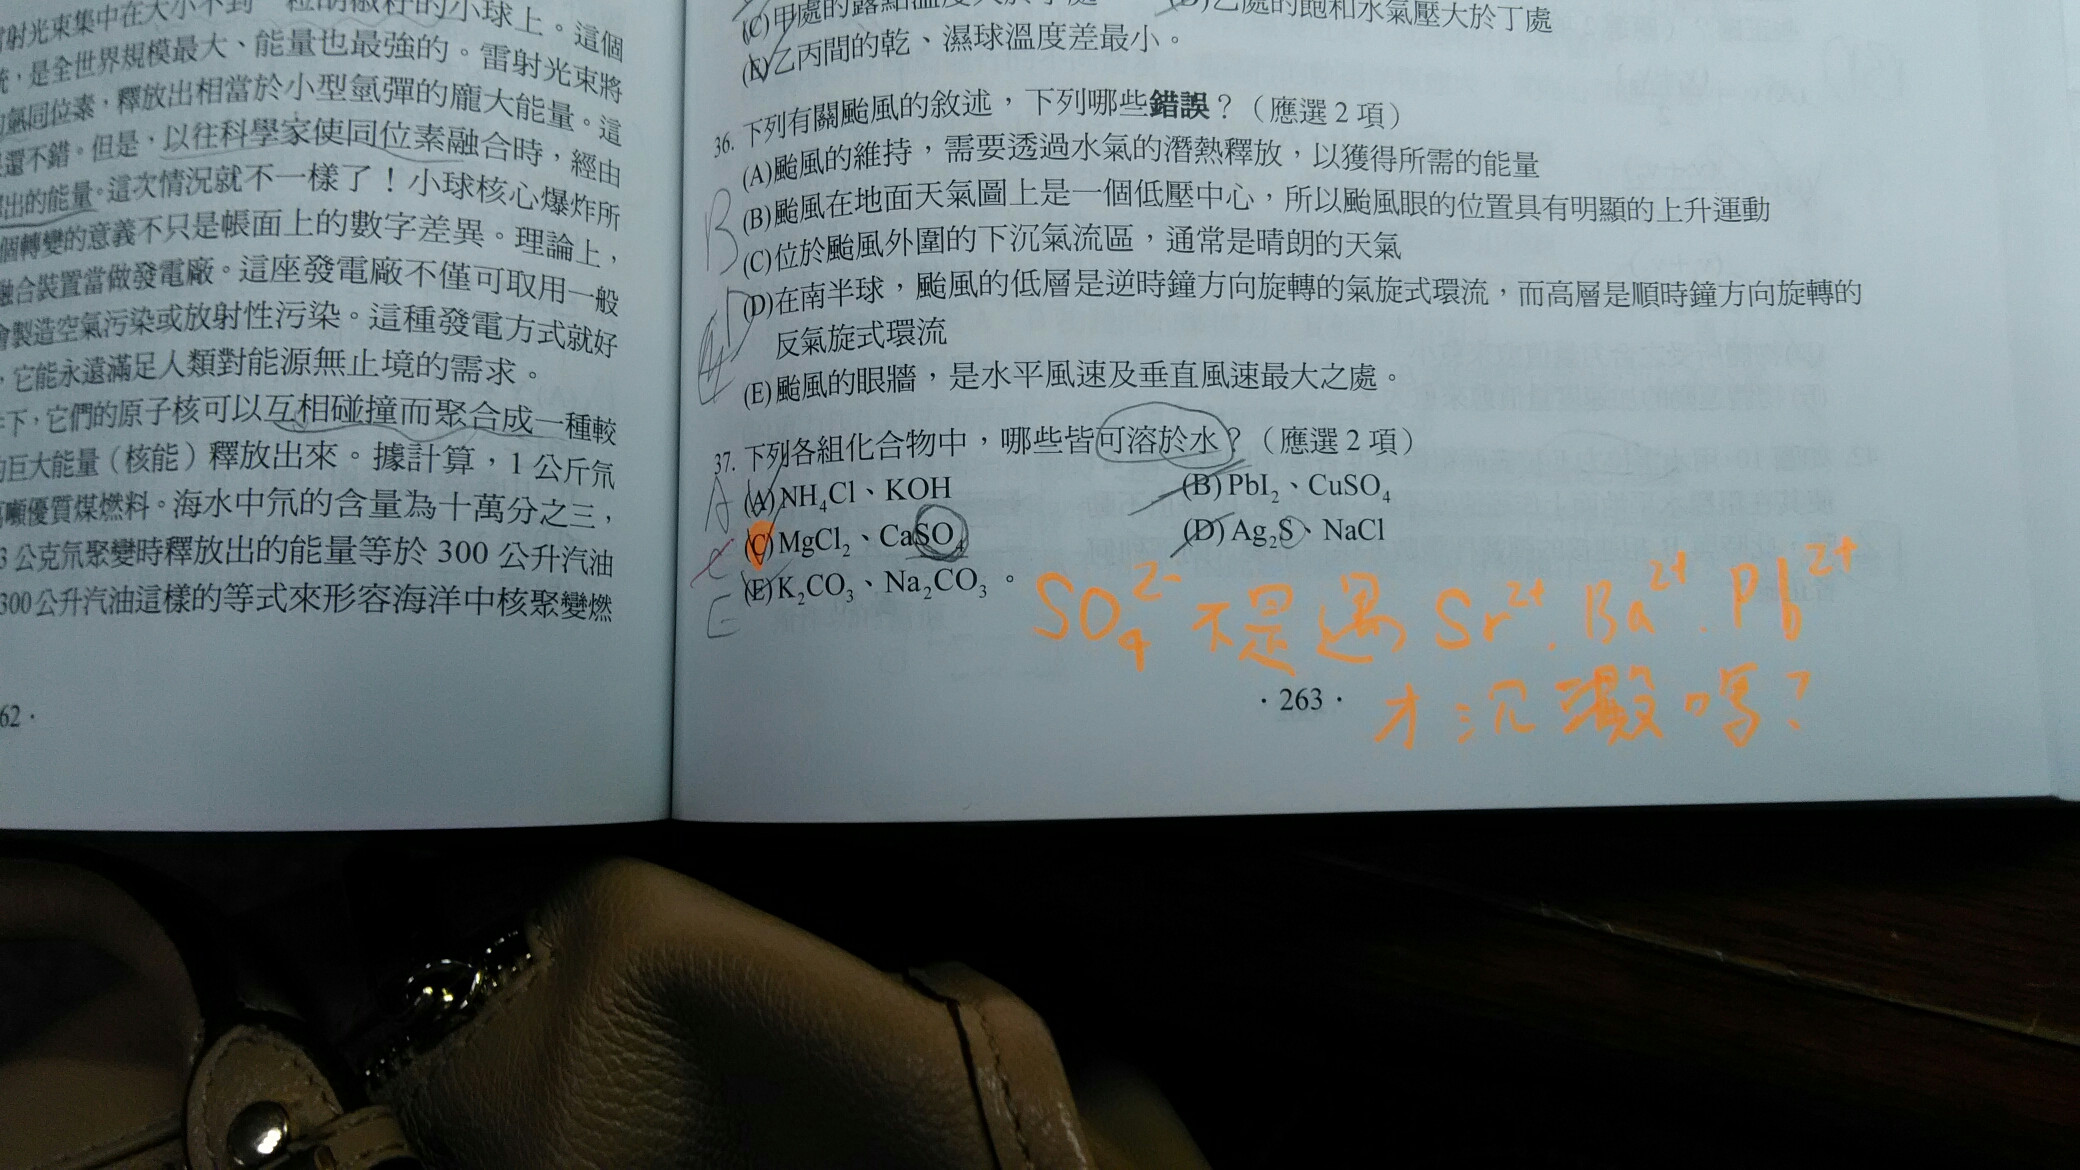 射光束集中在大小不到一粒胡椒籽的小球上。這個
統，是全世界規模最大、能量也最強的。雷射光束將
氫同位素，釋放出相當於小型氫彈的龐大能量。這
還不錯。但是，以往科學家使同位素融合時，經由
出的能量。這次情況就不一樣了！小球核心爆炸所
個轉變的意義不只是帳面上的數字差異。理論上，
融合裝置當做發電廠。這座發電廠不僅可取用一般
會製造空氣污染或放射性污染。這種發電方式就好
，它能永遠滿足人類對能源無止境的需求。
下，它們的原子核可以互相碰撞而聚合成一種較
的巨大能量（核能）釋放出來。據計算，1 公斤氘
噸優質煤燃料。海水中氘的含量為十萬分之三，
3 公克氘聚變時釋放出的能量等於 300 公升汽油
300公升汽油這樣的等式來形容海洋中核聚變燃
62 ·
(C)甲處的露點溫度大於丁處 (D)乙處的飽和水氣壓大於丁處
(E)乙丙間的乾、濕球溫度差最小。
36. 下列有關颱風的敘述，下列哪些錯誤？（應選 2 項）
(A)颱風的維持，需要透過水氣的潛熱釋放，以獲得所需的能量
(B)颱風在地面天氣圖上是一個低壓中心，所以颱風眼的位置具有明顯的上升運動
(C)位於颱風外圍的下沉氣流區，通常是晴朗的天氣
(D)在南半球，颱風的低層是逆時鐘方向旋轉的氣旋式環流，而高層是順時鐘方向旋轉的
反氣旋式環流
(E)颱風的眼牆，是水平風速及垂直風速最大之處。
B
D
37. 下列各組化合物中，哪些皆可溶於水？（應選 2 項）
(A) NH₄Cl、KOH (B) PbI₂、CuSO₄
(C) MgCl₂、CaSO₄ (D) Ag₂S、NaCl
(E) K₂CO₃、Na₂CO₃。
A
C
E
SO₄²⁻ 不是遇 Sr²⁺. Ba²⁺. Pb²⁺
才沉澱嗎？
· 263 ·